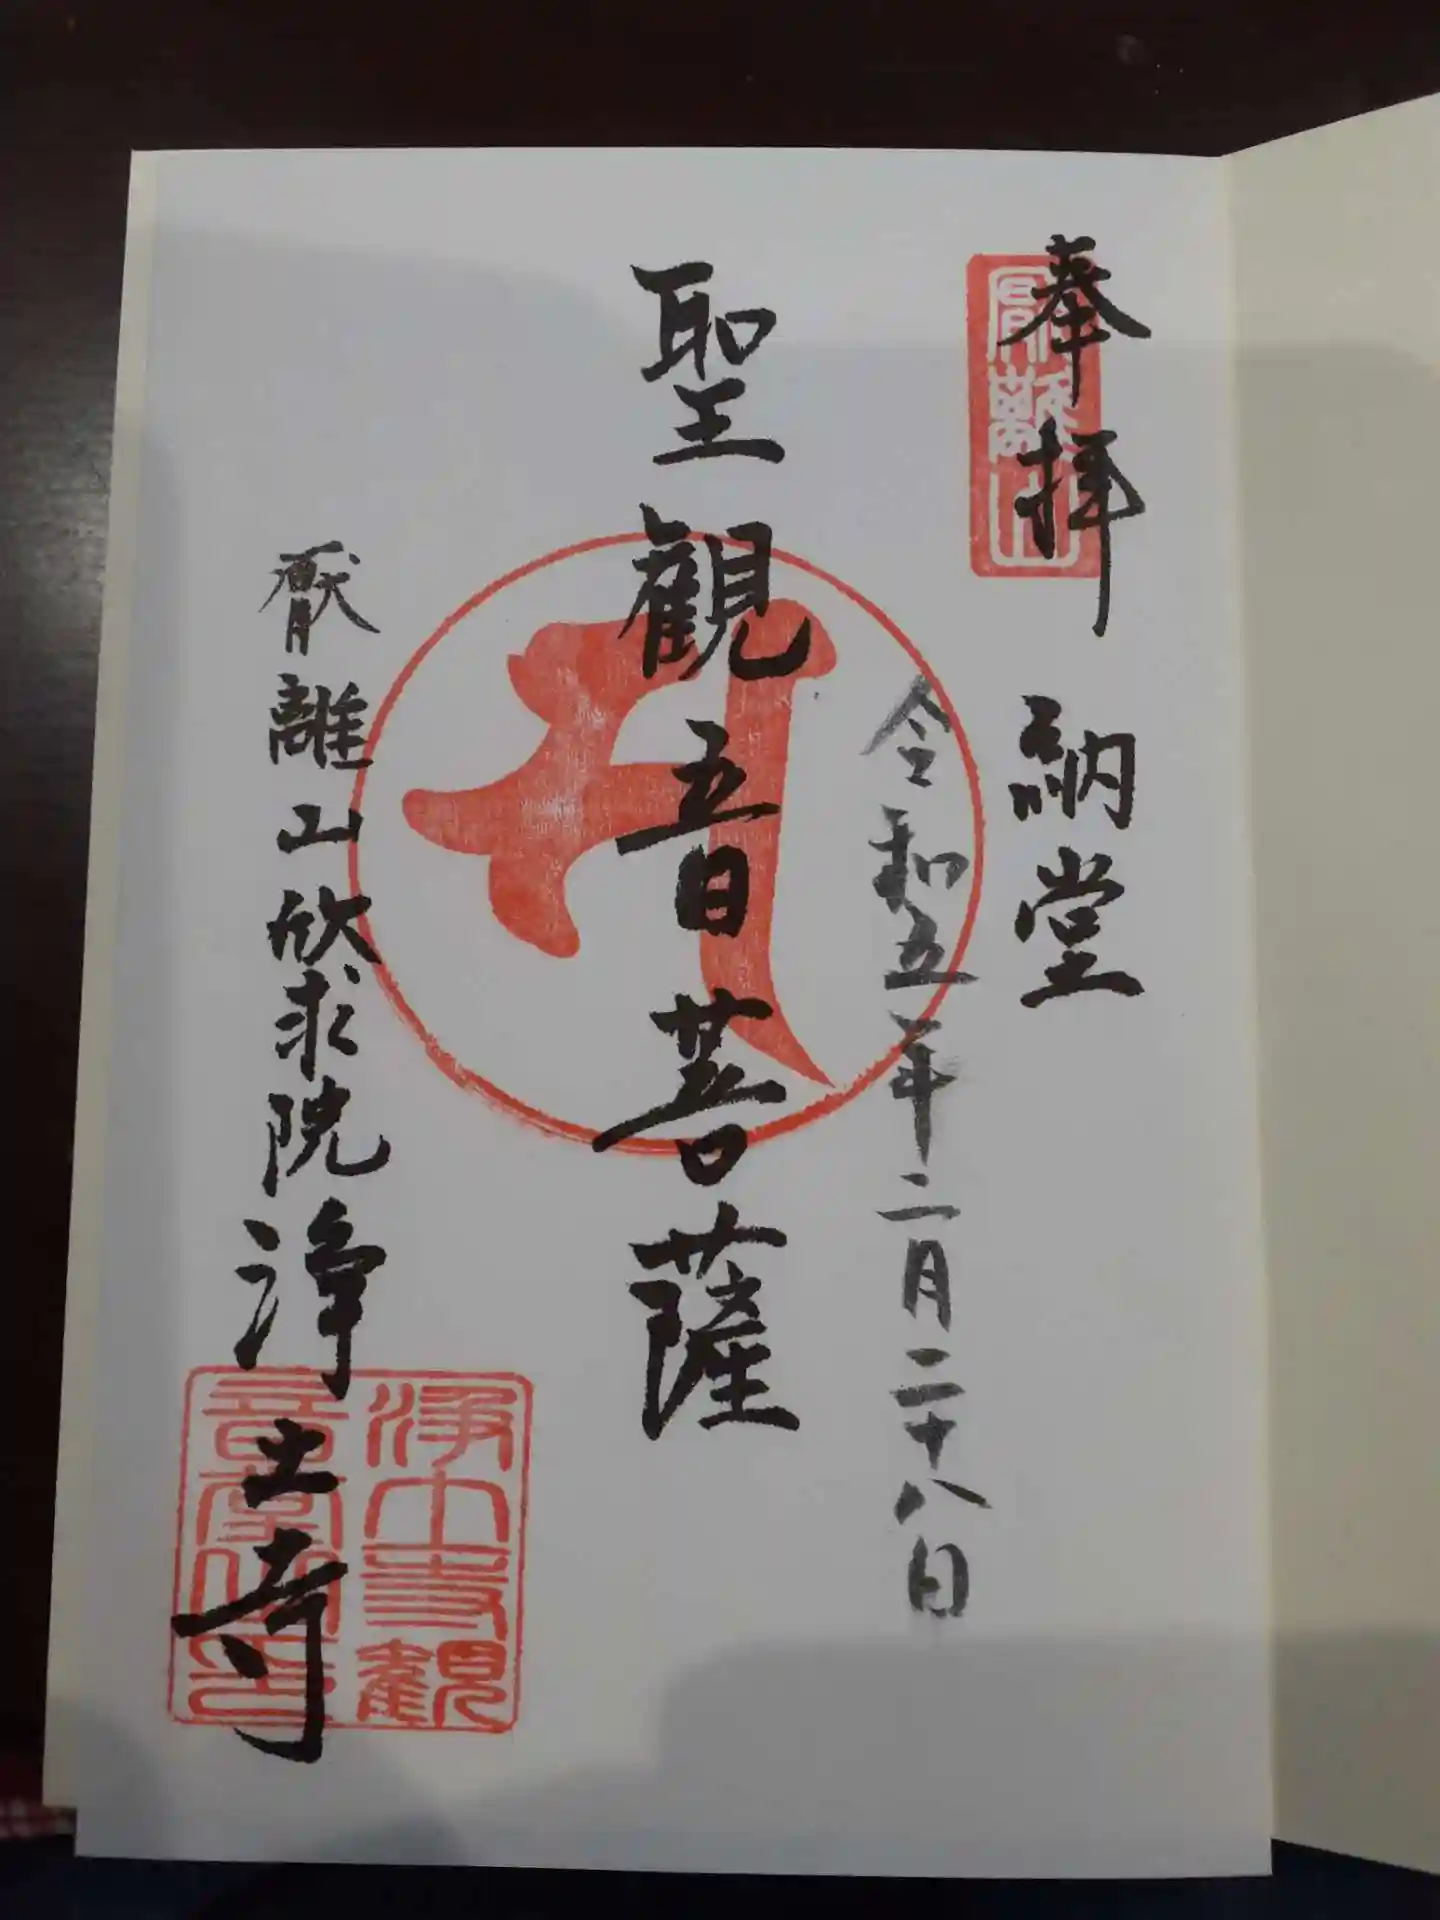 奉拝 納堂
令和五年二月二十八日
聖観音菩薩
厭離山欣求院浄土寺
浄土寺観
音堂之印